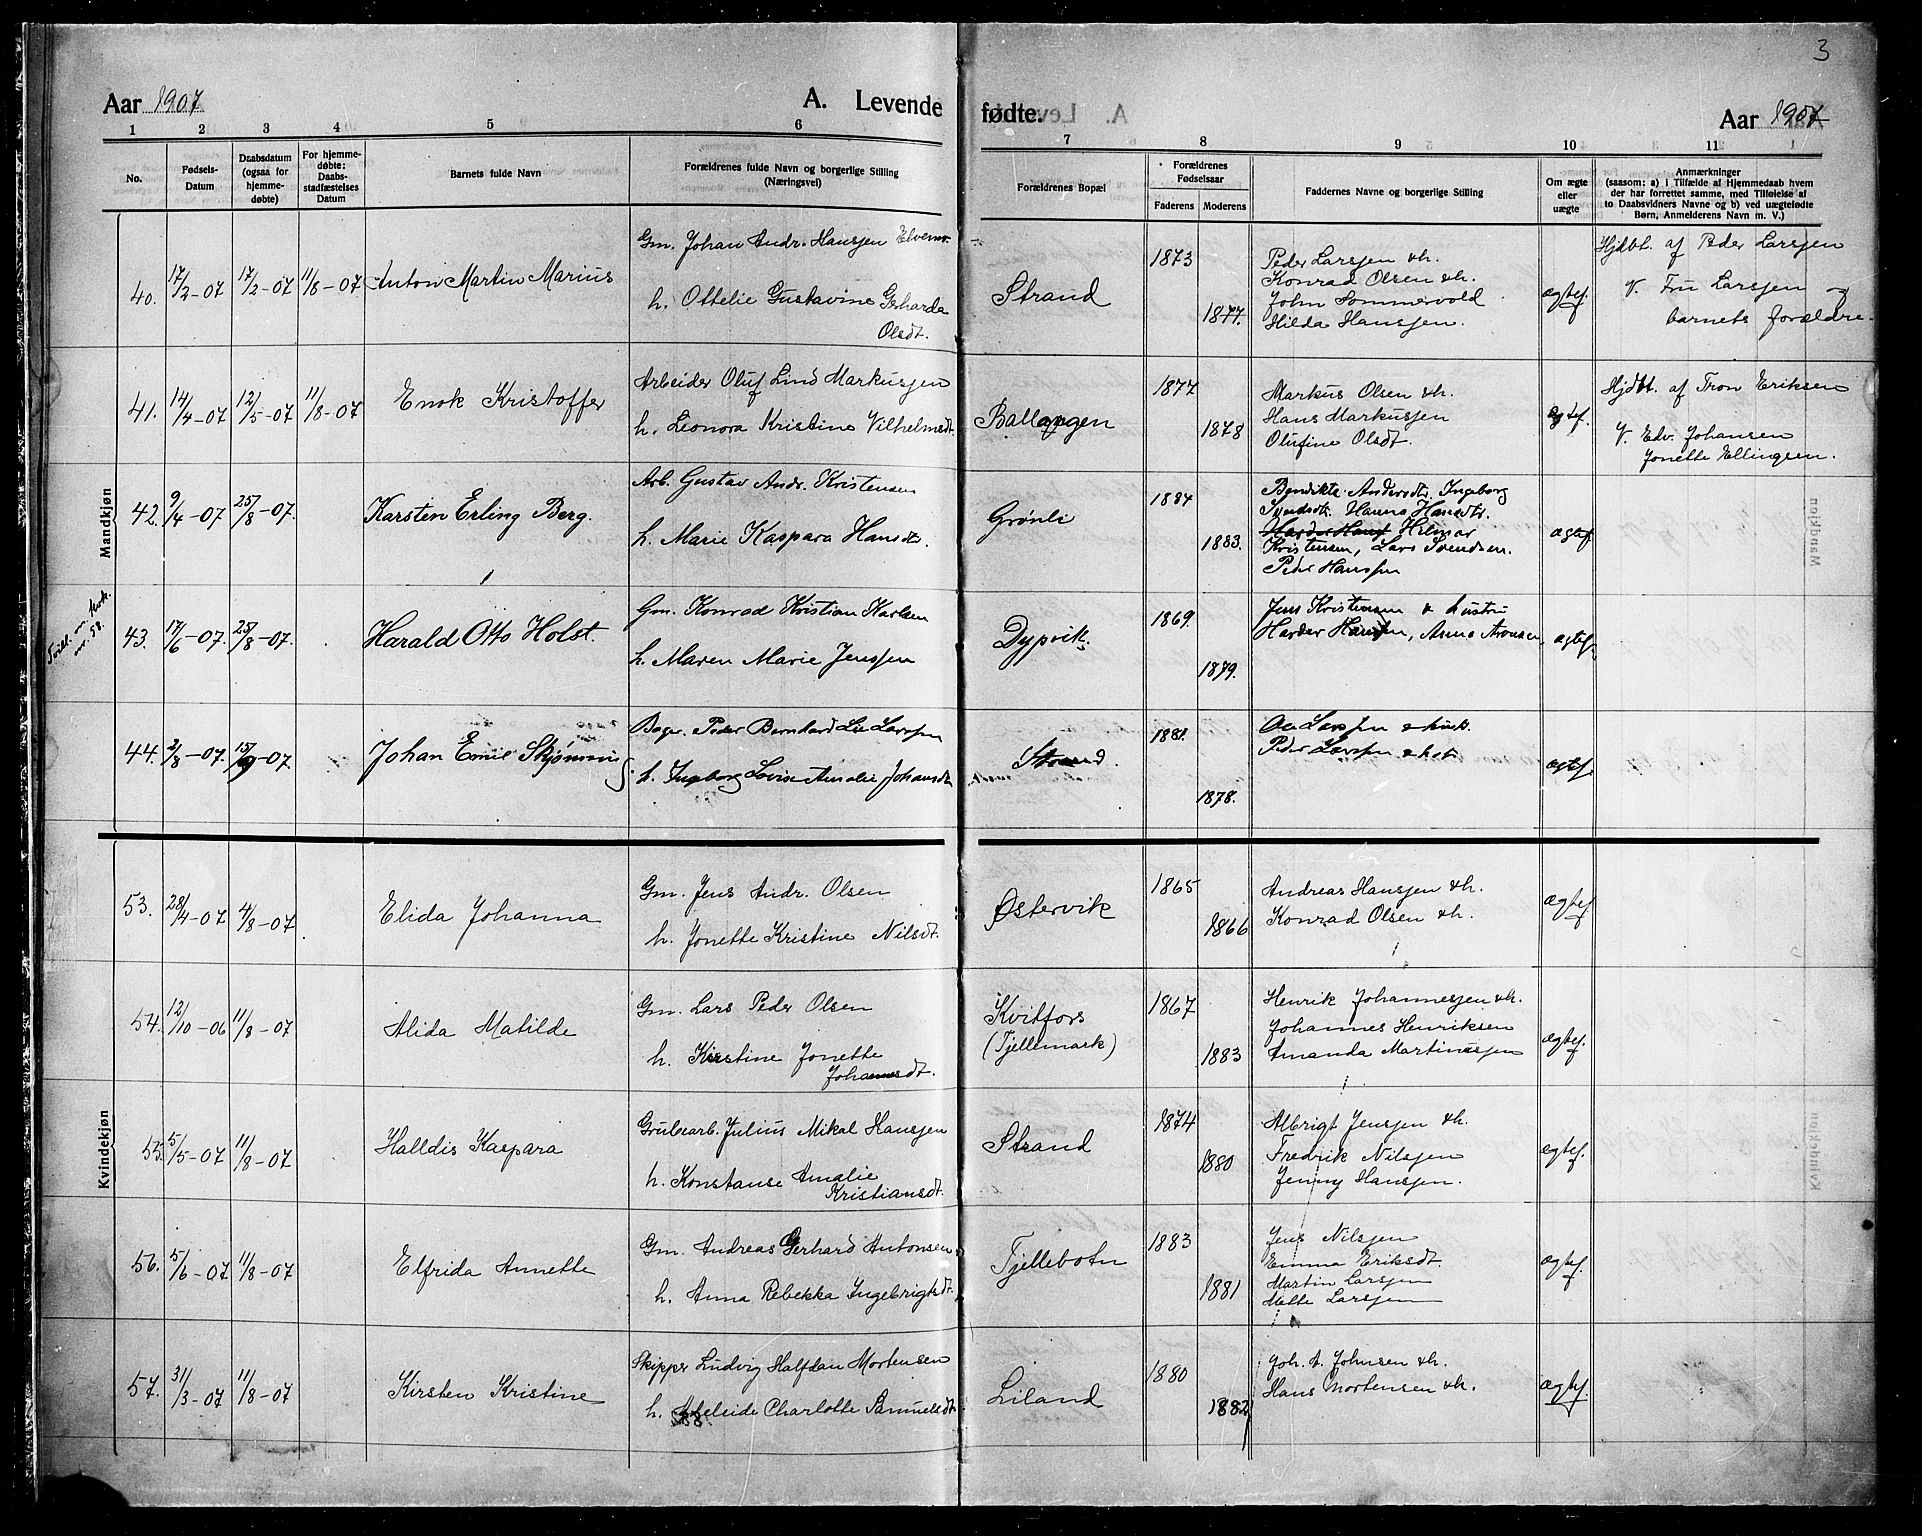 3
Aar 1907
A. Levende
fødte.
Aar 1907
1 2 3 4 5 6 7 8 9 10 11
No.
Fødsels-
Datum
Daabsdatum
(ogsaa for
hjemme-
døbte)
For hjemme-
døbte:
Daabs-
stadfæstelses
Datum
Barnets fulde Navn
Forældrenes fulde Navn og borgerlige Stilling
(Næringsvei)
Forældrenes Bopæl
Forældrenes
Fødselsaar
Faderens Moderens
Faddernes Navne og borgerlige Stilling
Om ægte
eller
uægte
Anmærkninger
(saasom: a) i Tilfælde af Hjemmedaab hvem
der har forrettet samme, med Tilføielse af
to Daabsvidners Navne og b) ved uægtefødte
Børn, Anmelderens Navn m. V.)
Mandkjøn
40. 17/2-07 17/2-07 11/8-07 Anton Martin Marius
Gm. Johan Andr. Hansjen Elvemo.
h. Ottelie Gustavine Gerharda
Olsdt.
Strand
1873
1877.
Peder Larsjen &h.
Konrad Olsen &h.
John Sommervold
Hilda Hansjen.
ægtef.
Hjdbt. af Peder Larsjen
V. Fru Larsjen og
barnets forældre.
41. 14/4-07 12/5-07 11/8-07 Enok Kristoffer
Arbeider Oluf Lind Markusjen
h. Leonora Kristine Vilhelmsdt.
Ballangen
1877
1878
Markus Olsen &h.
Hans Markusjen
Olufine Olsdt.
ægtef.
Hjdbt. af Tron Eriksen
V. Edv. Johansen
Jonette Ellingsen.
42. 9/4-07 25/8-07. Karsten Erling Berg.
Arb. Gustav Andr. Kristensen
h. Marie Kaspara Hansdt.
Grønli
1884
1883.
Bendikte Andersdt. Ingeborg
Hanna Hansdt.
Hilmar
Kristensen, Lars Svendsen.
Peder Hansjen
ægtef
Tvill. m. kvk.
nr. 58.
43. 17/6-07. 25/8-07. Harald Otto Holst.
Gm. Konrad Kristian Karlsen
h. Maren Marie Jenssen
Dypvik.
1869.
1879.
Jens Kristensen & hustru
Harder Hansen, Anna Aronsen
ægtef.
44. 2/8-07. 15/9-07. Johan Emil Skjönning
Peder Bernhard Lie Larssen
h. Ingeborg Lovise Amalie Johansdt
Strand.
1881.
1878.
Peder Larssen
ægtef.
Kvindekjøn
53. 28/4-07 4/8-07 Elida Johanna
Gm. Jens Andr. Olsen
h. Jonette Kristine Nilsdt.
Østervik
1865
1866
Andreas Hansjen &h.
Konrad Olsen &h.
ægtef.
54. 12/10-06 11/8-07 Alida Matilde
Gm. Lars Peder Olsen
h. Kirstine Jonette
Johannesdt.
Kvitfors
(Tjellemark)
1867
1883
Henrik Johannesjen &h.
Johannes Henriksen
Amanda Martinusjen
ægtef.
55. 5/5-07 11/8-07 Halldis Kaspara
Grubearb. Julius Mikal Hansjen
h. Konstanse Amalie
Kristiansdt.
Strand
1874
1880
Albrigt Jensjen &h.
Fredrik Nilsjen
Jenny Hansjen.
ægtef.
56. 5/6-07 11/8-07 Elfrida Annette
Gm. Andreas Gerhard Antonsen
h. Anna Rebekka Ingebrigtsdt.
Tjellebotn
1883
1881
Jens Nilsjen
Emma Eriksdt.
Martin Larsjen
Mette Larsjen
ægtef.
57. 31/3-07 11/8-07 Kirsten Kristine
Skipper Ludvig Halfdan Mortensen
h. Adeleide Charlotte Samuelsdt.
Liland
1880
1882
Joh. A. Johnsen &h.
Hans Mortensen &h.
ægtef.